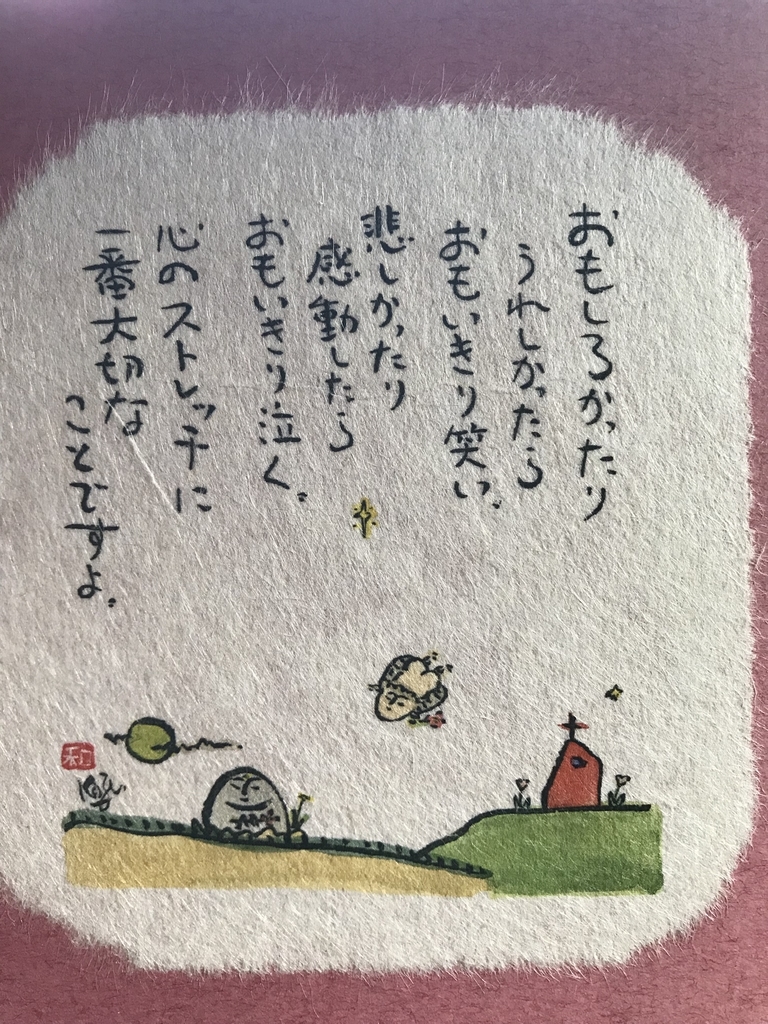 おもしろかったり
うれしかったら
おもいきり笑い。
悲しかったり
感動したら
おもいきり泣く。
心のストレッチに
一番大切な
ことですよ。
和